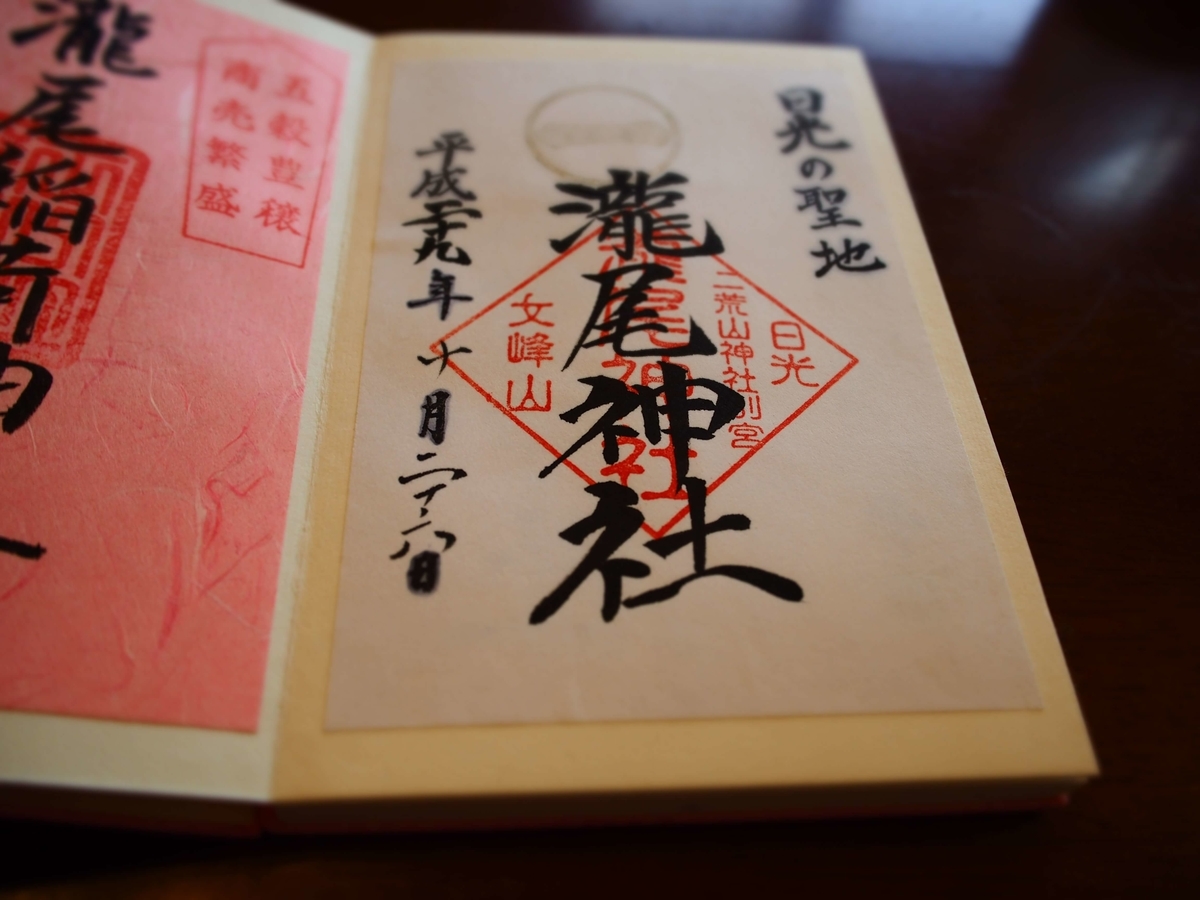 日光の聖地
日光
二荒山神社別宮
瀧尾神社
瀧尾神社
女峰山
平成二十九年十月二十八日
五穀豊穣
商売繁盛
瀧尾稲荷神